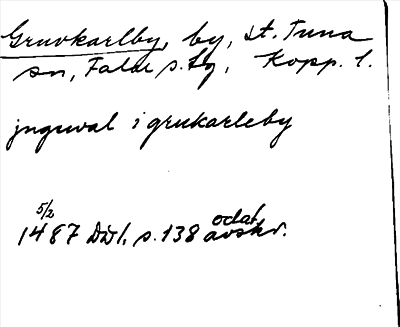 Gruvkarlby, by, St. Tuna
sn, Falu s. tg, Kopp. l.
jnguwal i grukarleby
5/2
1487 DD1, s. 138 odat. avskr.